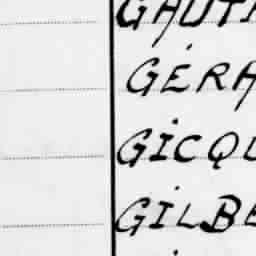 GAUTH
GÉRA
GICQU
GILBE